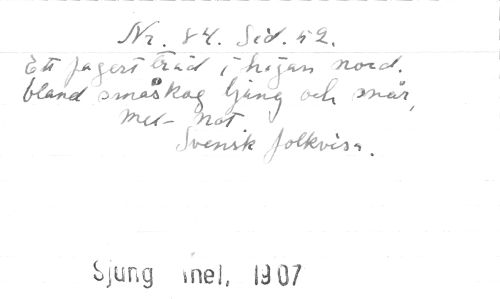 Nr. 84. Sid. 52.
Ett fagert träd i högan nord.
bland småskog ljung och snår,
Med not
Svensk folkvisa.
Sjung mel, 1907